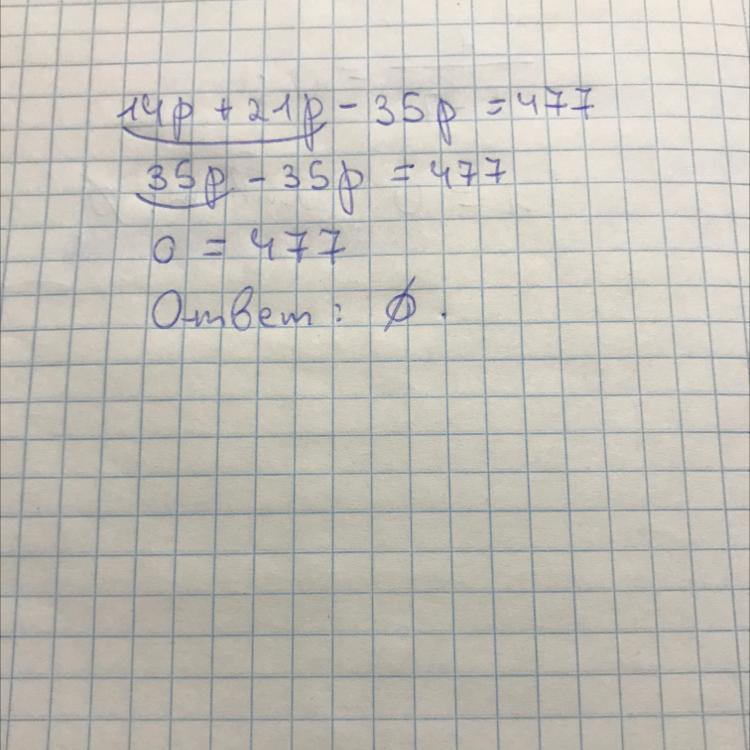 14p + 21p - 35p = 477
35p - 35p = 477
0 = 477
Ответ: ∅.